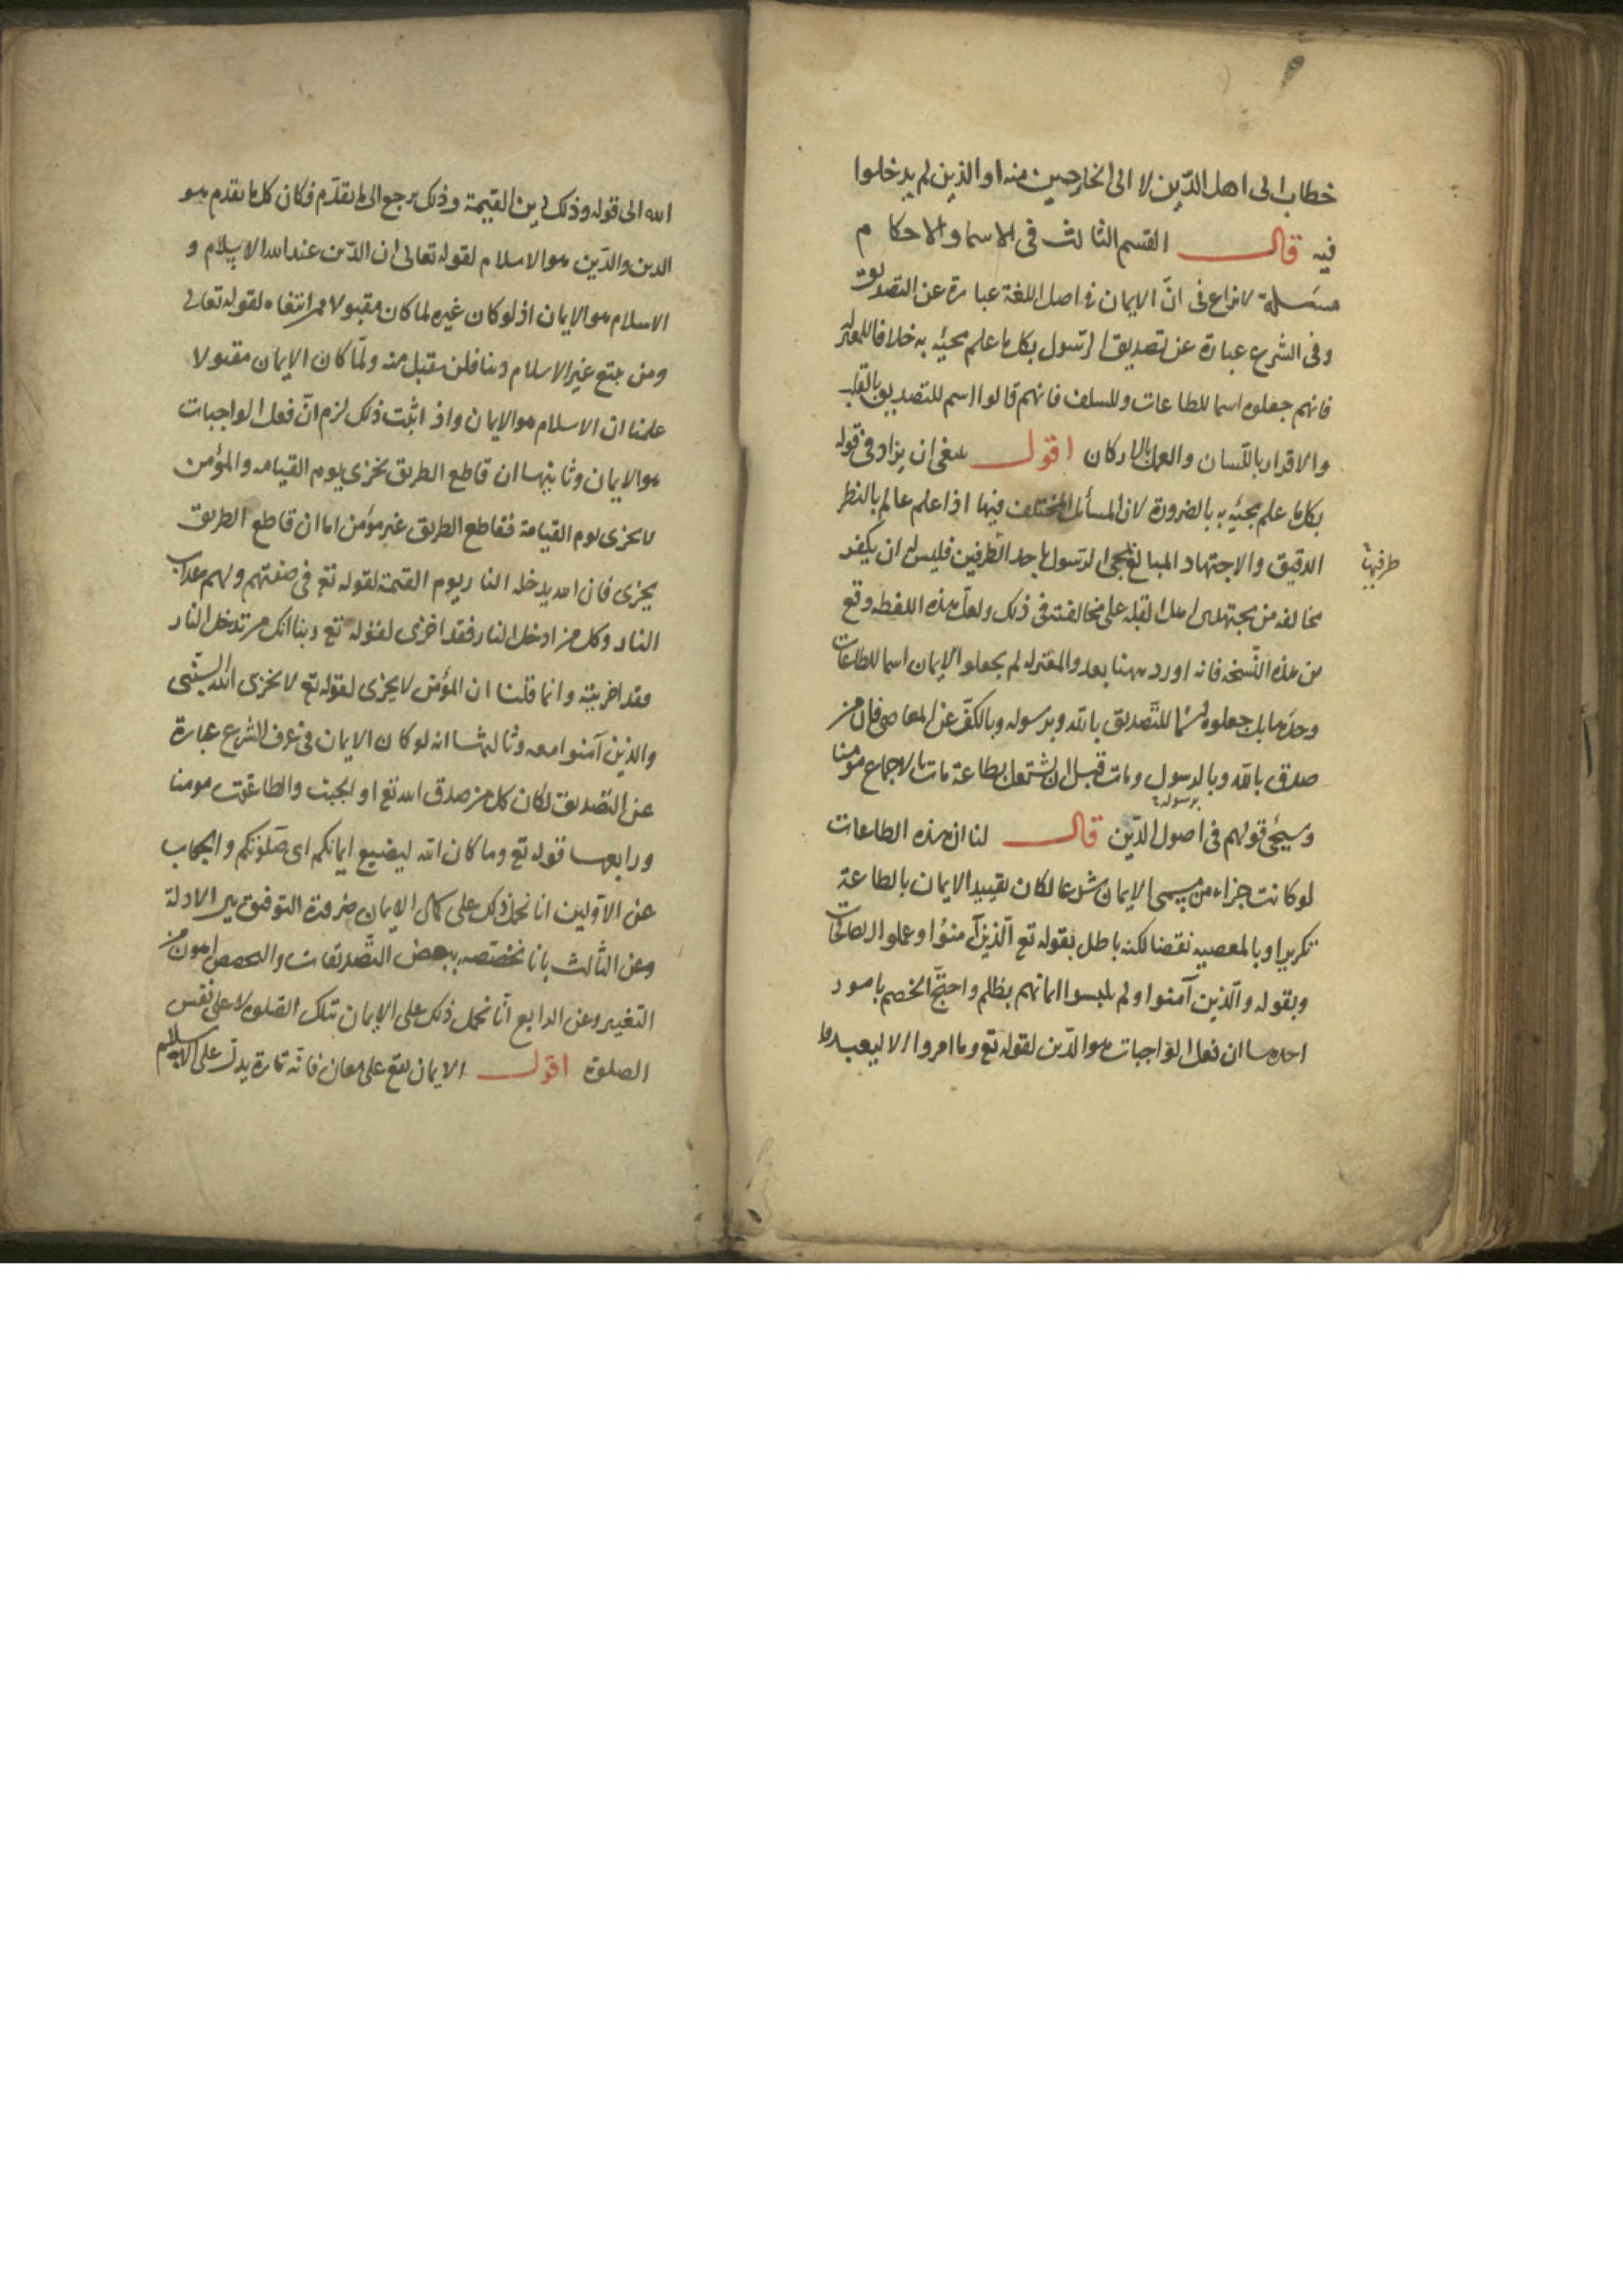 خطاب الى اهل الدّين لا الى الخارجين منه او الذين لم يدخلوا
فيه قال القسم الثالث فى الاسما والاحكام
مسئلة لا نزاع فى انّ الايمان فى اصل اللغة عبارة عن التصديق
وفى الشرع عبارة عن تصديق الرسول بكل ما علم مجيئه به خلافا للمعتزلة
فانهم جعلوه اسما للطاعات وللسلف فانهم قالوا اسم للتصديق بالقلب
والاقرار باللّسان والعمل بالاركان اقول ينبغى ان يزاد فى قوله
بكل ما علم مجيئه به بالضرورة لان المسائل المختلف فيها اذا علم عالم بالنظر
الدقيق والاجتهاد المبالغ مجى الرسول باحد الطرفين فليس له ان يكفر
طرفيها
مخالفه من مجتهدى اهل القبلة على مخالفته فى ذلك ولعل هذه اللفظه وقع
من هذه النّسخه فانه اورد ههنا بعد والمعتزله لم يجعلوا الايمان اسما للطاعات
وحدها بل جعلوه اسما للتّصديق بالله وبرسوله وبالكفّ عن المعاصى فان من
صدق بالله وبالرسول ومات قبل ان يشتغل بطاعة مات بالاجماع مؤمنا
برسوله
وسيجئ قولهم فى اصول الدّين قال لنا ان هذه الطاعات
لو كانت جزاء من مسمى الايمان شرعا لكان تقييد الايمان بالطاعة
تكريرا وبالمعصيه نقضا لكنه باطل بقوله تع الّذين آمنوا وعملوا الصالحات
وبقوله والّذين آمنوا ولم يلبسوا ايمانهم بظلم واحتجّ الخصم بامور
احدها ان فعل الواجبات هو الدّين لقوله تع وما امروا الا ليعبدوا
الله الى قوله وذلك دين القيمة وذلك يرجع الى ما تقدّم فكان كل ما تقدم هو
الدين والدّين هو الاسلام لقوله تعالى ان الدّين عند الله الاسلام و
الاسلام هو الايمان اذ لو كان غيره لما كان مقبولا ممن ابتغاه لقوله تعالى
ومن يبتغ غير الاسلام دينا فلن يقبل منه ولمّا كان الايمان مقبولا
علمنا ان الاسلام هو الايمان واذا ثبت ذلك لزم انّ فعل الواجبات
هو الايمان وثانيها ان قاطع الطريق يخزى يوم القيامه والمؤمن
لا يخزى يوم القيامة فقاطع الطريق غير مؤمن اما ان قاطع الطريق
يخزى فان الله يدخله النار يوم القيمة لقوله تع فى صفتهم ولهم عذاب
النار وكل من ادخل النار فقد اخزى لقوله تع ربنا انك من تدخل النار
فقد اخزيته وانما قلنا ان المؤمن لا يخزى لقوله تع لا يخزى الله النّبى
والذين آمنوا معه وثالثها انه لو كان الايمان فى عرف الشرع عبارة
عن التصديق لكان كل من صدق الله تع او الجبت والطاغوت مومنا
ورابعها قوله تع وما كان الله ليضيع ايمانكم اى صلوتكم والجواب
عن الاوّلين انا نحمل ذلك على كمال الايمان ضرورة التوفيق بين الادلة
وعن الثالث بانا نخصّصه ببعض التّصديقات والتخصيص اهون من
التغيير وعن الرابع انّا نحمل ذلك على الايمان بتلك الصلوة لا على نفس
الصلوة اقول الايمان يقع على معان فانّه تارة يدلّ على الاسلام